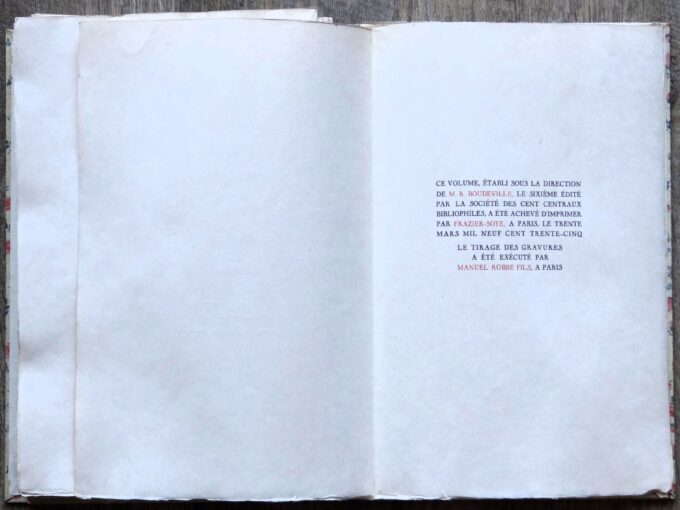 CE VOLUME, ÉTABLI SOUS LA DIRECTION
DE M. R. BOUDEVILLE, LE SIXIÈME ÉDITÉ
PAR LA SOCIÉTÉ DES CENT CENTRAUX
BIBLIOPHILES, A ÉTÉ ACHEVÉ D'IMPRIMER
PAR FRAZIER-SOYE, A PARIS, LE TRENTE
MARS MIL NEUF CENT TRENTE-CINQ
LE TIRAGE DES GRAVURES
A ÉTÉ EXÉCUTÉ PAR
MANUEL ROBBE FILS, A PARIS